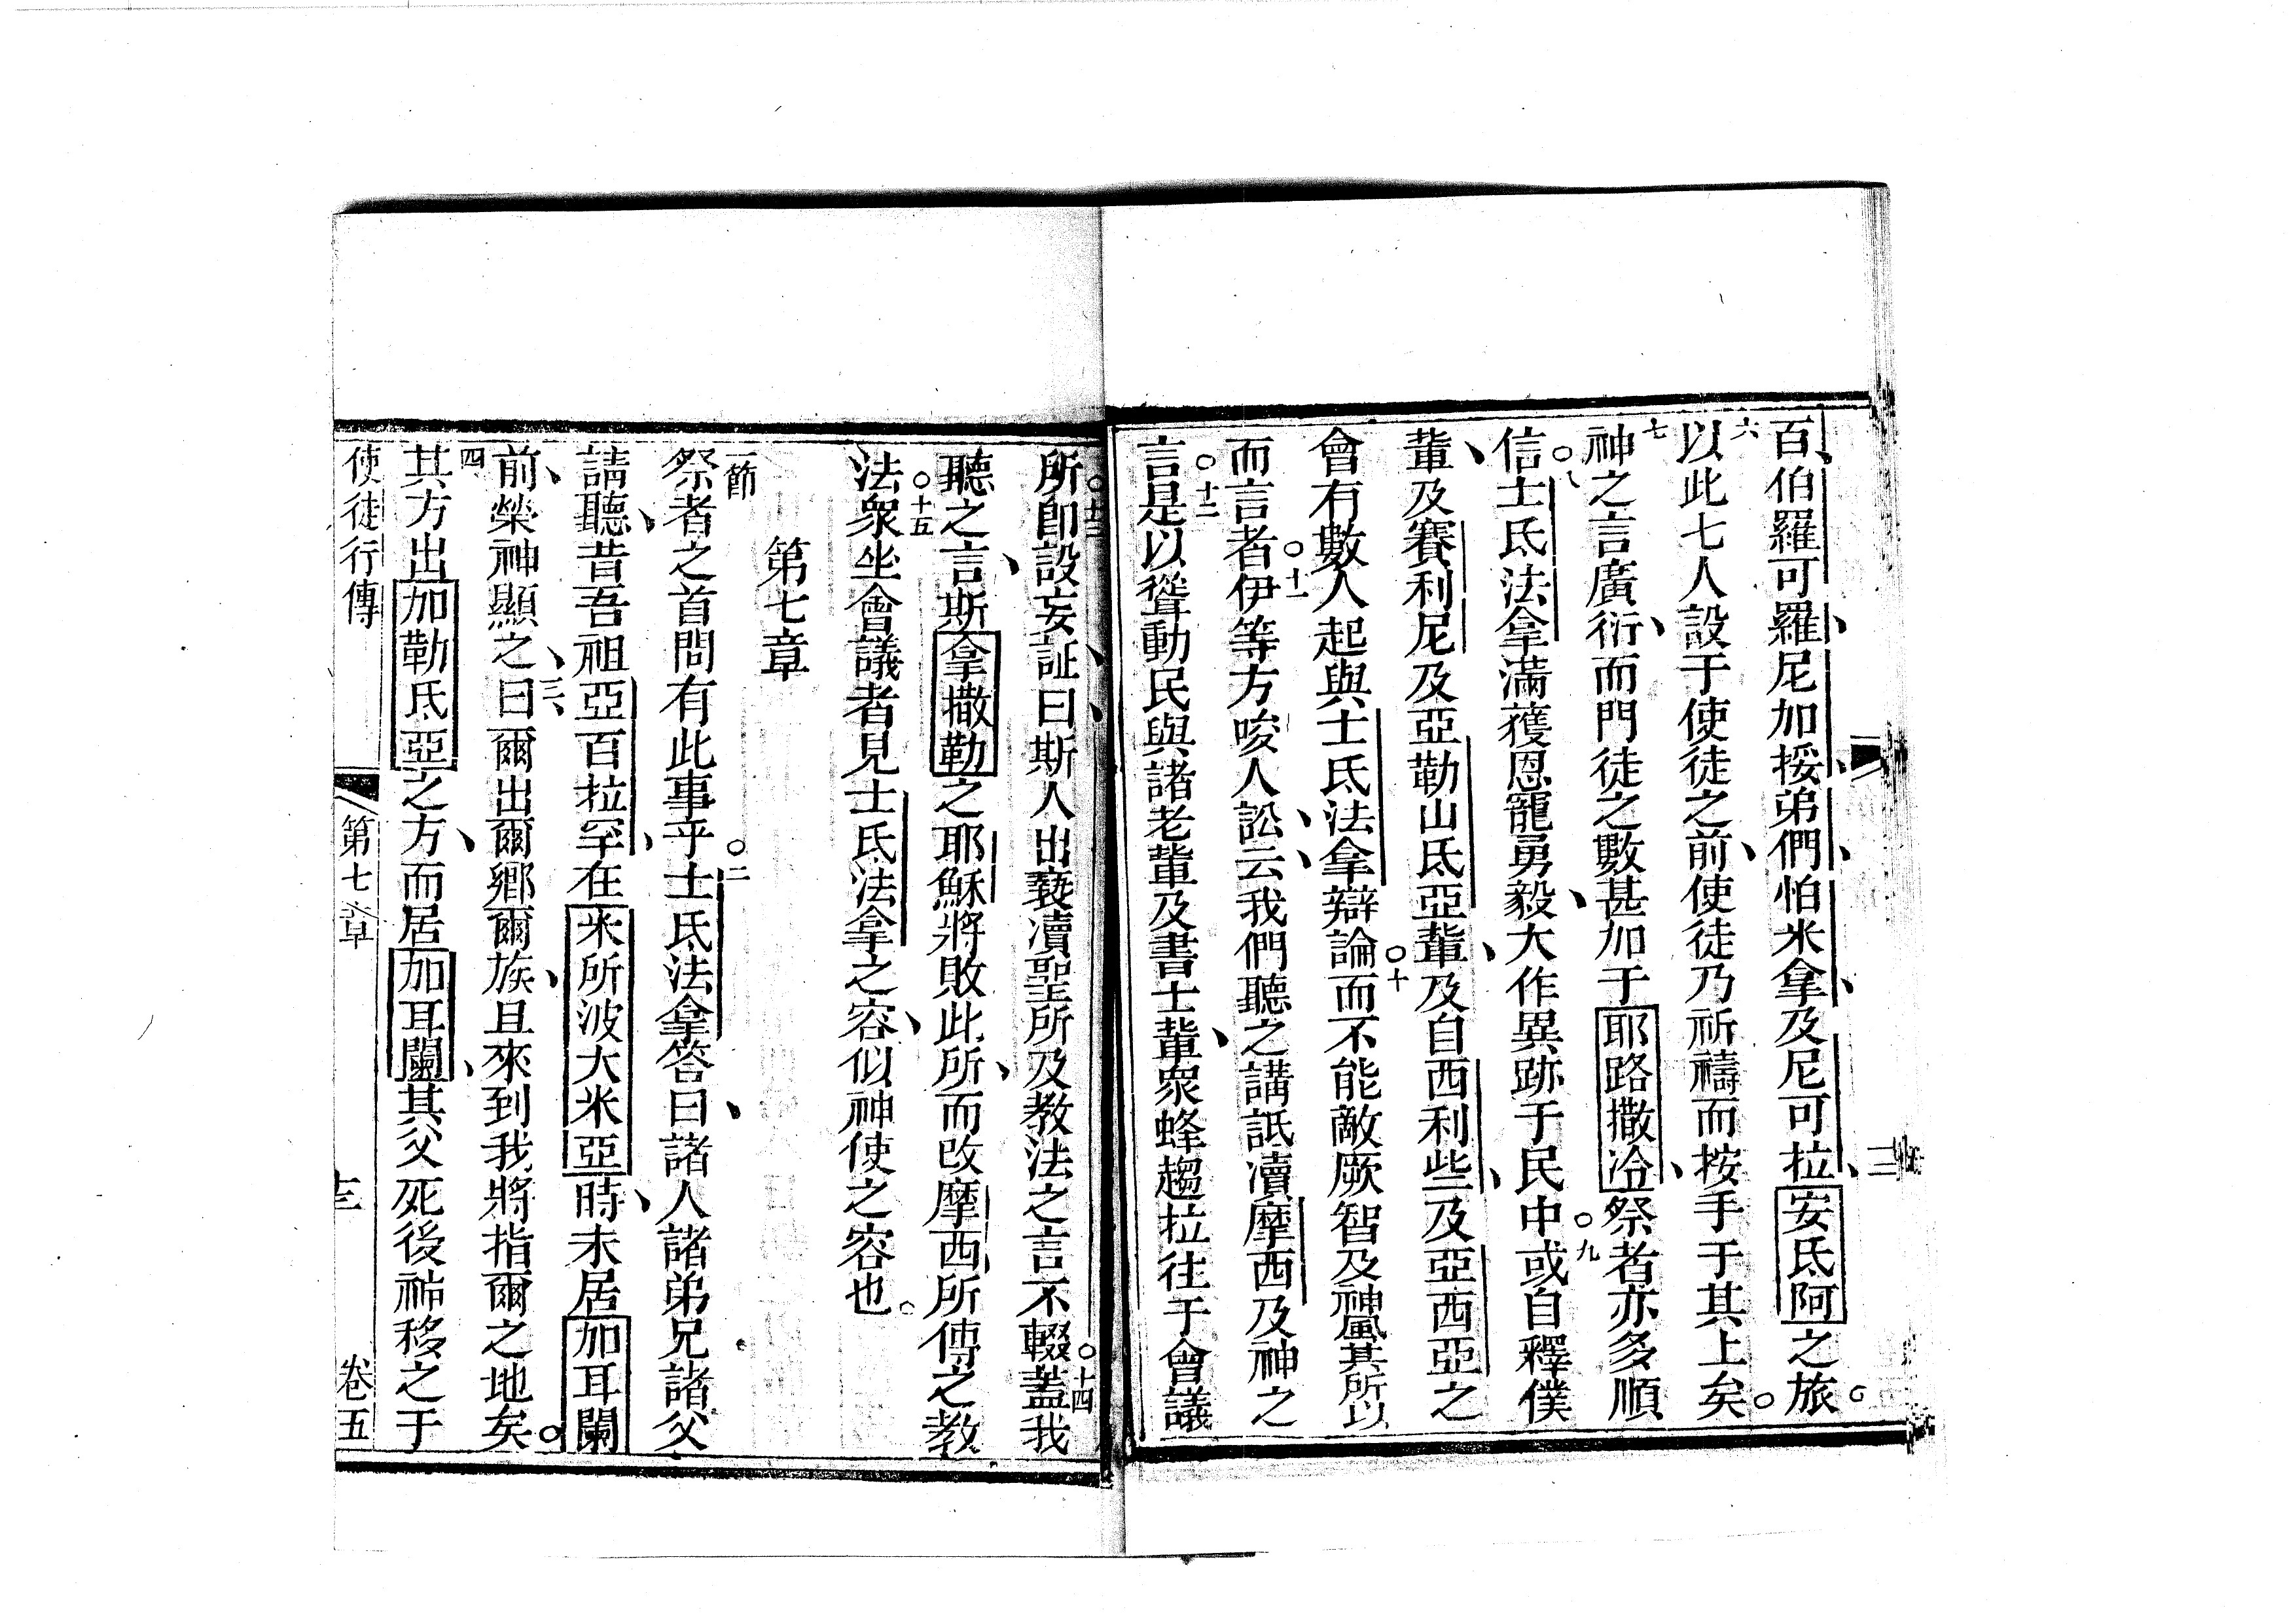 百伯羅可羅尼加挼弟們怕米拿及尼可拉安氐阿之旅
六以此七人設于使徒之前使徒乃祈禱而按手于其上矣
七神之言廣衍而門徒之數甚加于耶路撒冷祭者亦多順
信八士氐法拿滿獲恩寵勇毅大作異跡于民中九或自釋僕
輩及賽利尼及亞勒山氐亞輩及自西利些及亞西亞之
會有數人起與士氐法拿辯論十而不能敵厥智及神風其所以
而言者十一伊等方唆人訟云我們聽之講詆瀆摩西及神之
言十二是以聳動民與諸老輩及書士輩衆蜂趨拉往于會議
所十三即設妄証曰斯人出褻瀆聖所及教法之言不輟十四蓋我
聽之言斯拿撒勒之耶穌將敗此所而改摩西所傳之教
法十五衆坐會議者見士氐法拿之容似神使之容也
第七章
一節祭者之首問有此事乎二士氐法拿答曰諸人諸弟兄諸父
請聽昔吾祖亞百拉罕在米所波大米亞時未居加耳闌
前榮神顯之三曰爾出爾鄉爾族且來到我將指爾之地矣
四其方出加勒氐亞之方而居加耳闌其父死後神移之于
使徒行傳 第七章 十三 卷五